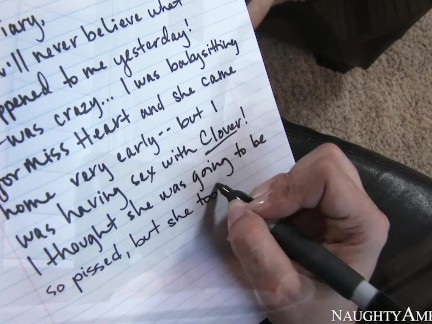 iary,
'll never believe what
ppened to me yesterday!
was crazy... I was babysitting
for miss Heart and she came
home very early -- but I
was having sex with Clover!
I thought she was going to be
so pissed, but she too
NAUGHTYAME